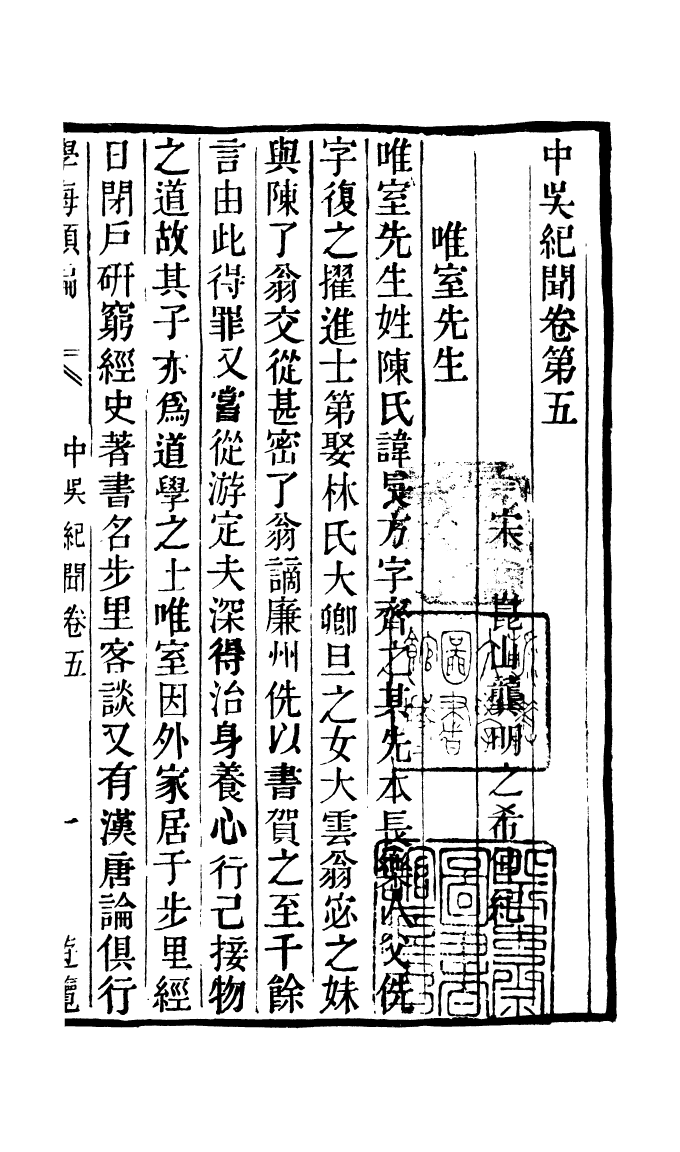 中吳紀聞卷第五
宋　崑山龔明之希仲紀
唯室先生
唯室先生姓陳氏諱長方字齊之其先本長樂人父侁
字復之擢進士第娶林氏大卿旦之女大雲翁宓之妹
與陳了翁交從甚密了翁謫廉州侁以書賀之至千餘
言由此得罪又嘗從游定夫深得治身養心行己接物
之道故其子亦爲道學之士唯室因外家居于步里經
日閉戶研窮經史著書名步里客談又有漢唐論俱行
學海類編　中吳紀聞卷五　一　遊覽